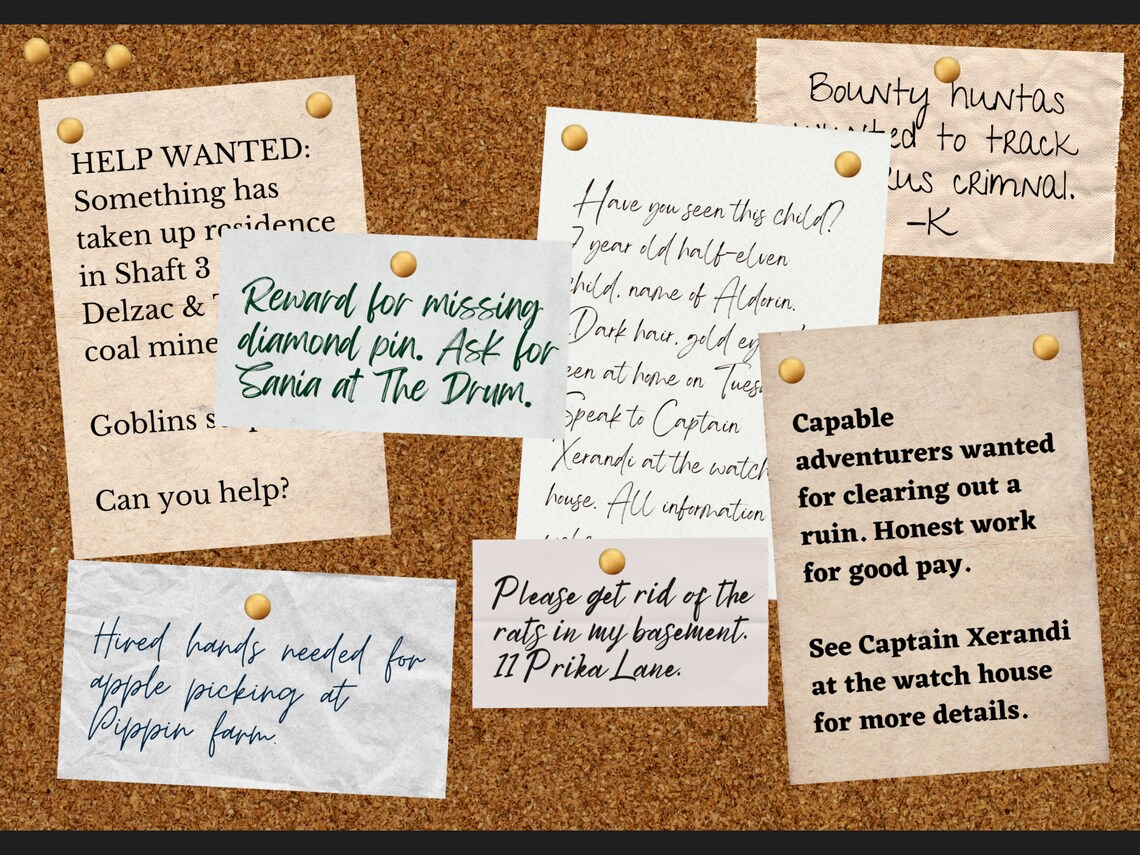 HELP WANTED:
Something has
taken up residence
in Shaft 3
Delzac &
coal mine
Goblins
Can you help?
Reward for missing
diamond pin. Ask for
Sania at The Drum.
Have you seen this child?
7 year old half-elven
child. name of Aldorin.
Dark hair. gold
at home on
Speak to Captain
Xerandi at the watch
house. All information
Bounty huntas
to track
crimnal.
-K
Capable
adventurers wanted
for clearing out a
ruin. Honest work
for good pay.
See Captain Xerandi
at the watch house
for more details.
Hired hands needed for
apple picking at
Pippin farm.
Please get rid of the
rats in my basement.
11 Prika Lane.